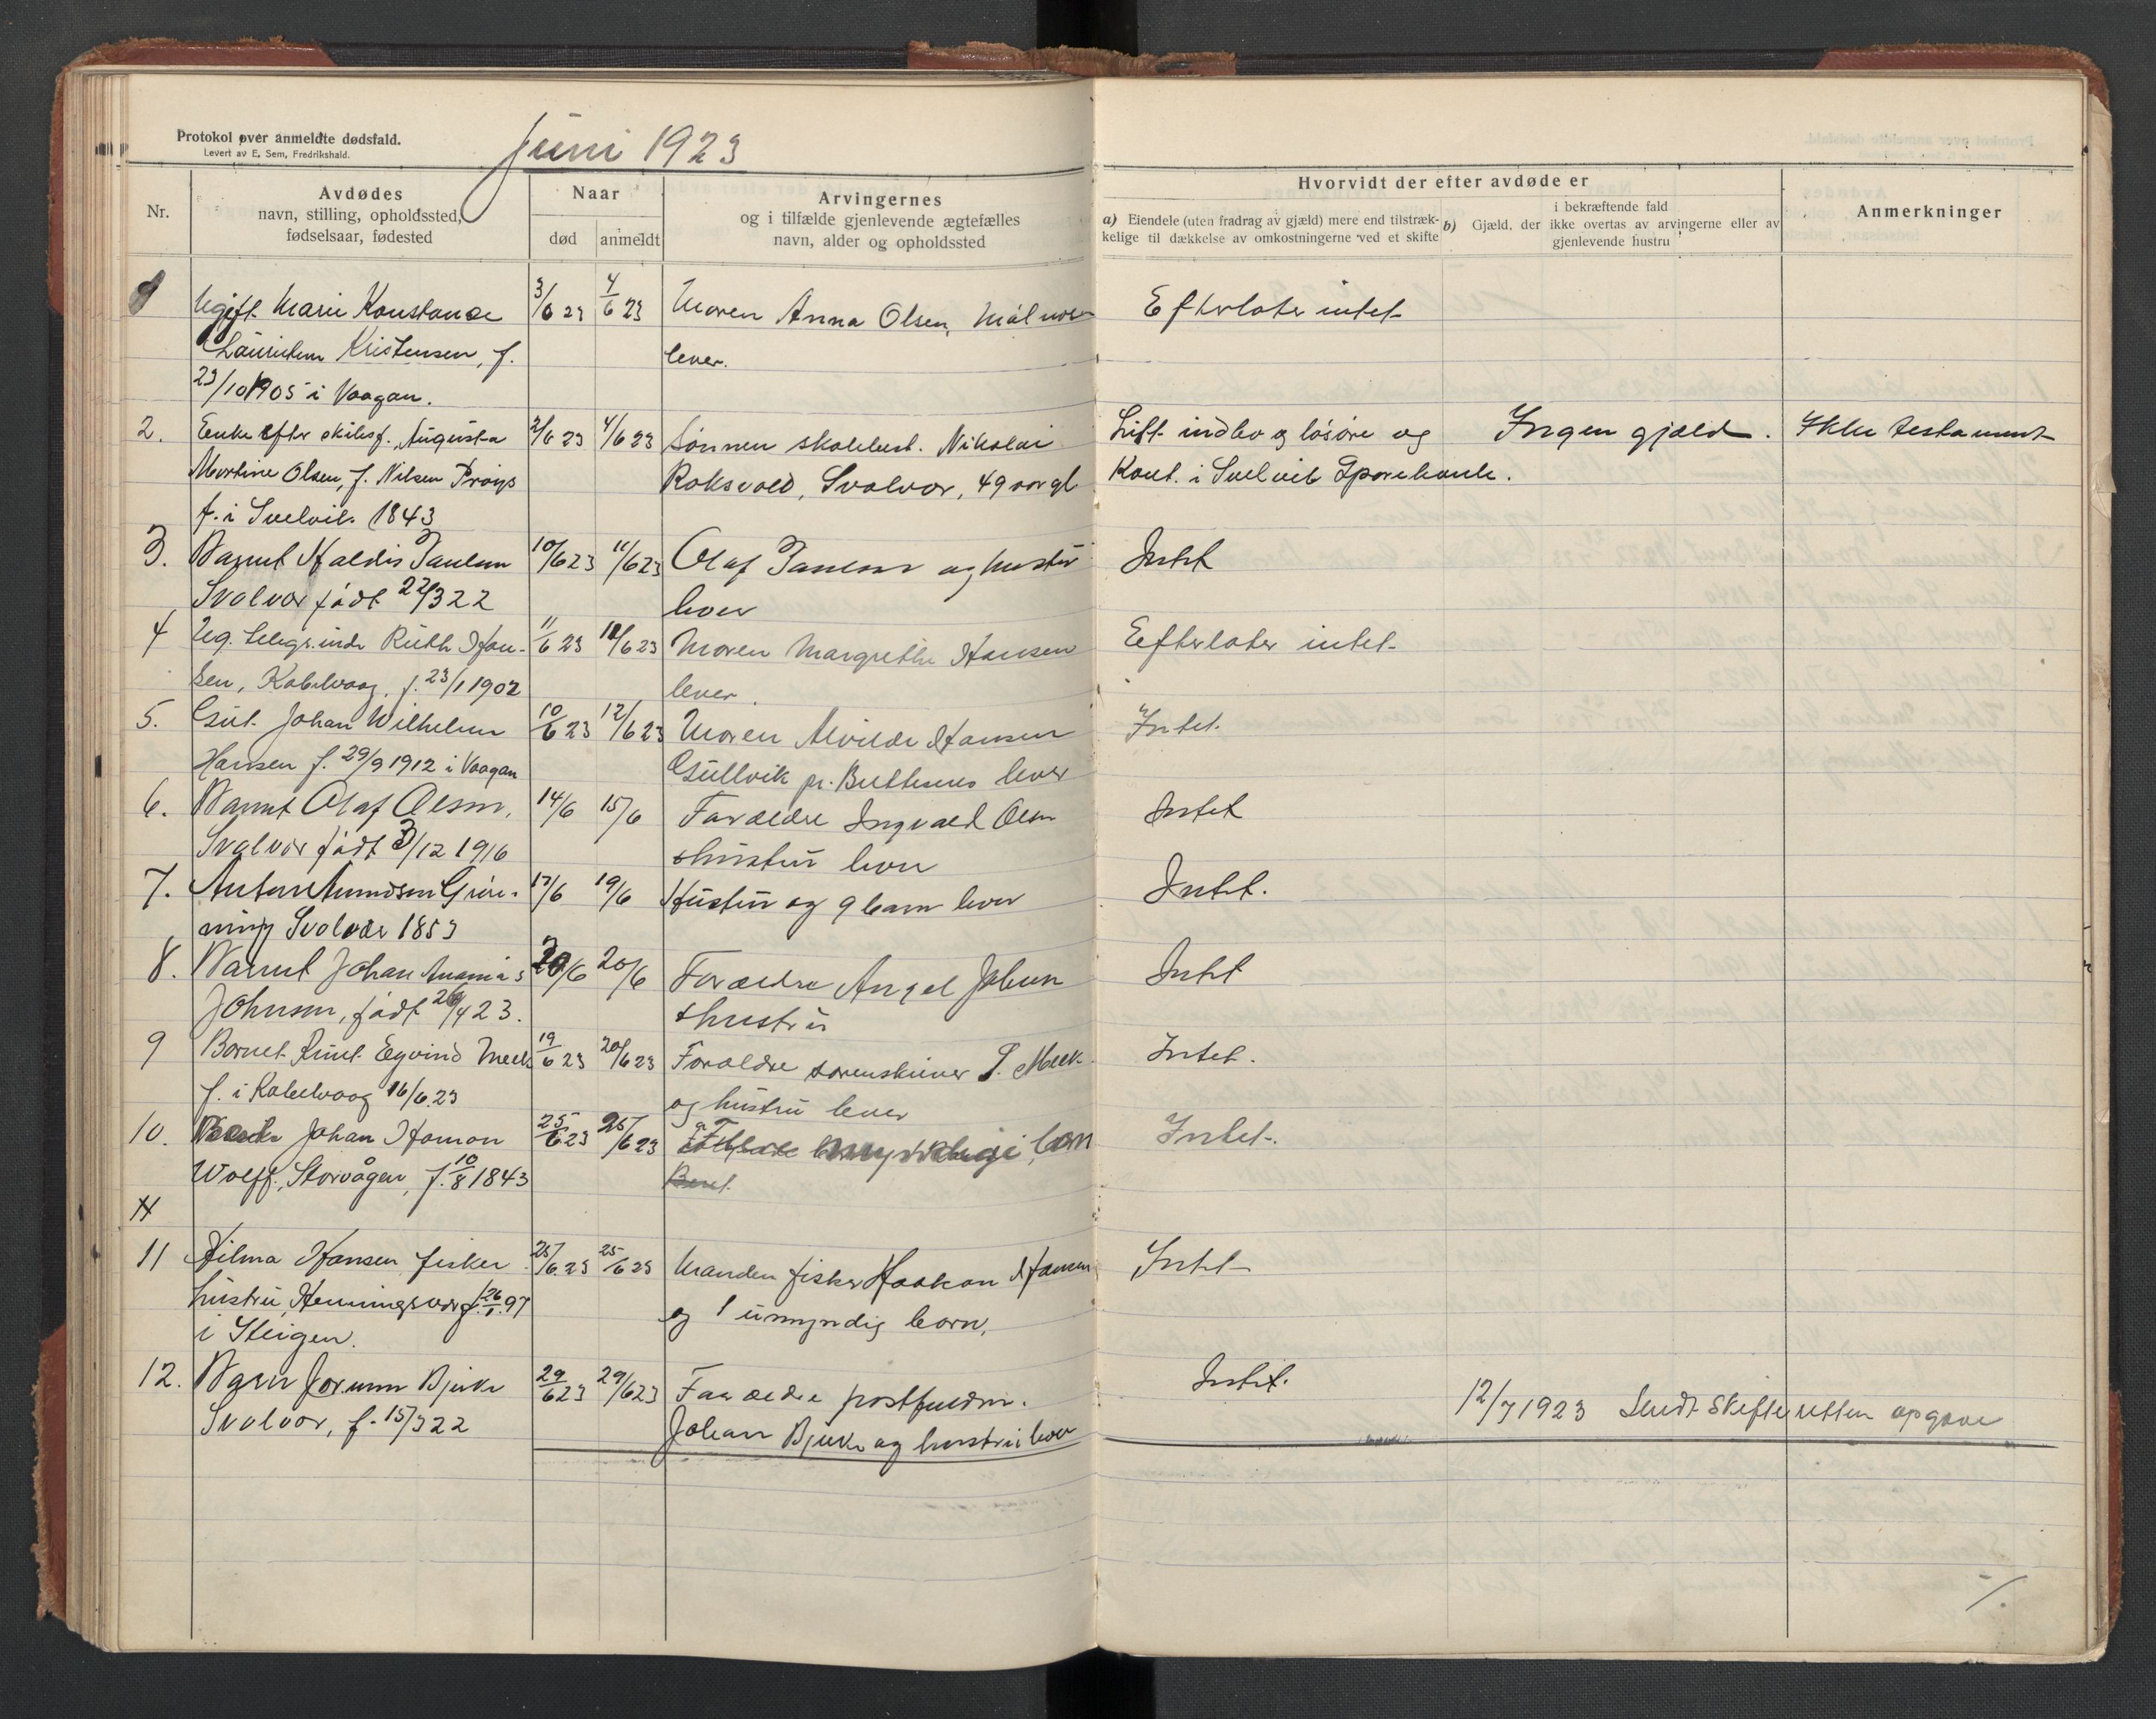 Protokol over anmeldte dødsfald.
Levert av E. Sem, Fredrikshald.
Juni 1923
Nr.
Avdødes
navn, stilling, opholdssted,
fødselsaar, fødested
Naar
død
anmeldt
Arvingernes
og i tilfælde gjenlevende ægtefælles
navn, alder og opholdssted
Hvorvidt der efter avdøde er
a) Eiendele (uten fradrag av gjæld) mere end tilstræk-
kelige til dækkelse av omkostningerne ved et skifte
i bekræftende fald
b) Gjæld, der ikke overtas av arvingerne eller av
gjenlevende hustru
Anmerkninger
Ugift Marie Konstance 3/6 23 4/6 23 Moren Anna Olsen, Efterlater intet
Kristensen, f. lever.
23/10 1905 i Vaagan.
2. Enke efter Augusta 2/6 23 4/6 23 Sønnen skolebest. Nikolai Litt indbo og løsøre og Ingen gjæld. Ikke testament
Martine Olsen, f. Nilsen Roksvold, Svolvær, 49 aar gl Kont. i Svelvik Sparebank.
f. i Svelvik 1843
3. Barnet Haldis Paulsen 10/6 23 11/6 23 Olaf Paulsen og hustru Intet
Svolvær født 22/3 22 lever
4 Ug. telegr.inde Ruth Han- 11/6 23 12/6 23 Moren Margrethe Hansen Eefterlater intet
sen, Kabelvaag, f. 23/1 1902 lever
5. Gut Johan Wilhelm 10/6 23 12/6 23 Moren Alvilde Hansen Intet.
Hansen f. 29/9 1912 i Vaagan Gullvik pr. lever
6. Barnet Olaf Olsen, 14/6 15/6 Forældre Ingvald Olsen Intet
Svolvær født 3/12 1916 & hustru lever
7. Anton Amundsen Grøn- 17/6 19/6 Hustru og 9 barn lever Intet.
ning Svolvær 1853
8. Barnet Johan Ananias 20/6 20/6 Forældre Angel Johnsen Intet
Johnsen, født 26/4 23. & hustru
9 Barnet Knut Eyvind Meek 19/6 23 20/6 23 Forældre sorenskriver P. Meek Intet.
f. i Kabelvaag 16/6.23 og hustru lever
10. Johan Hamon 25/6 23 25/6 23 myndige barn Intet.
Wolff, Storvågen, f. 10/8 1843 Barnet
11
11 Hilma Hansen fisker 25/6.23 25/6 23 Manden fisker Haakon Hansen Intet
hustru, Henningsvær f. 26/1.97 og 1 umyndig barn,
i Steigen.
12. Barn Jorunn Bjerke 29/6 23 29/6 23 Forældre postfuldm. Intet.
Svolvær, f. 15/3 22 Johan Bjerke og hustru lever
12/7 1923 Sendt Skifteretten opgave